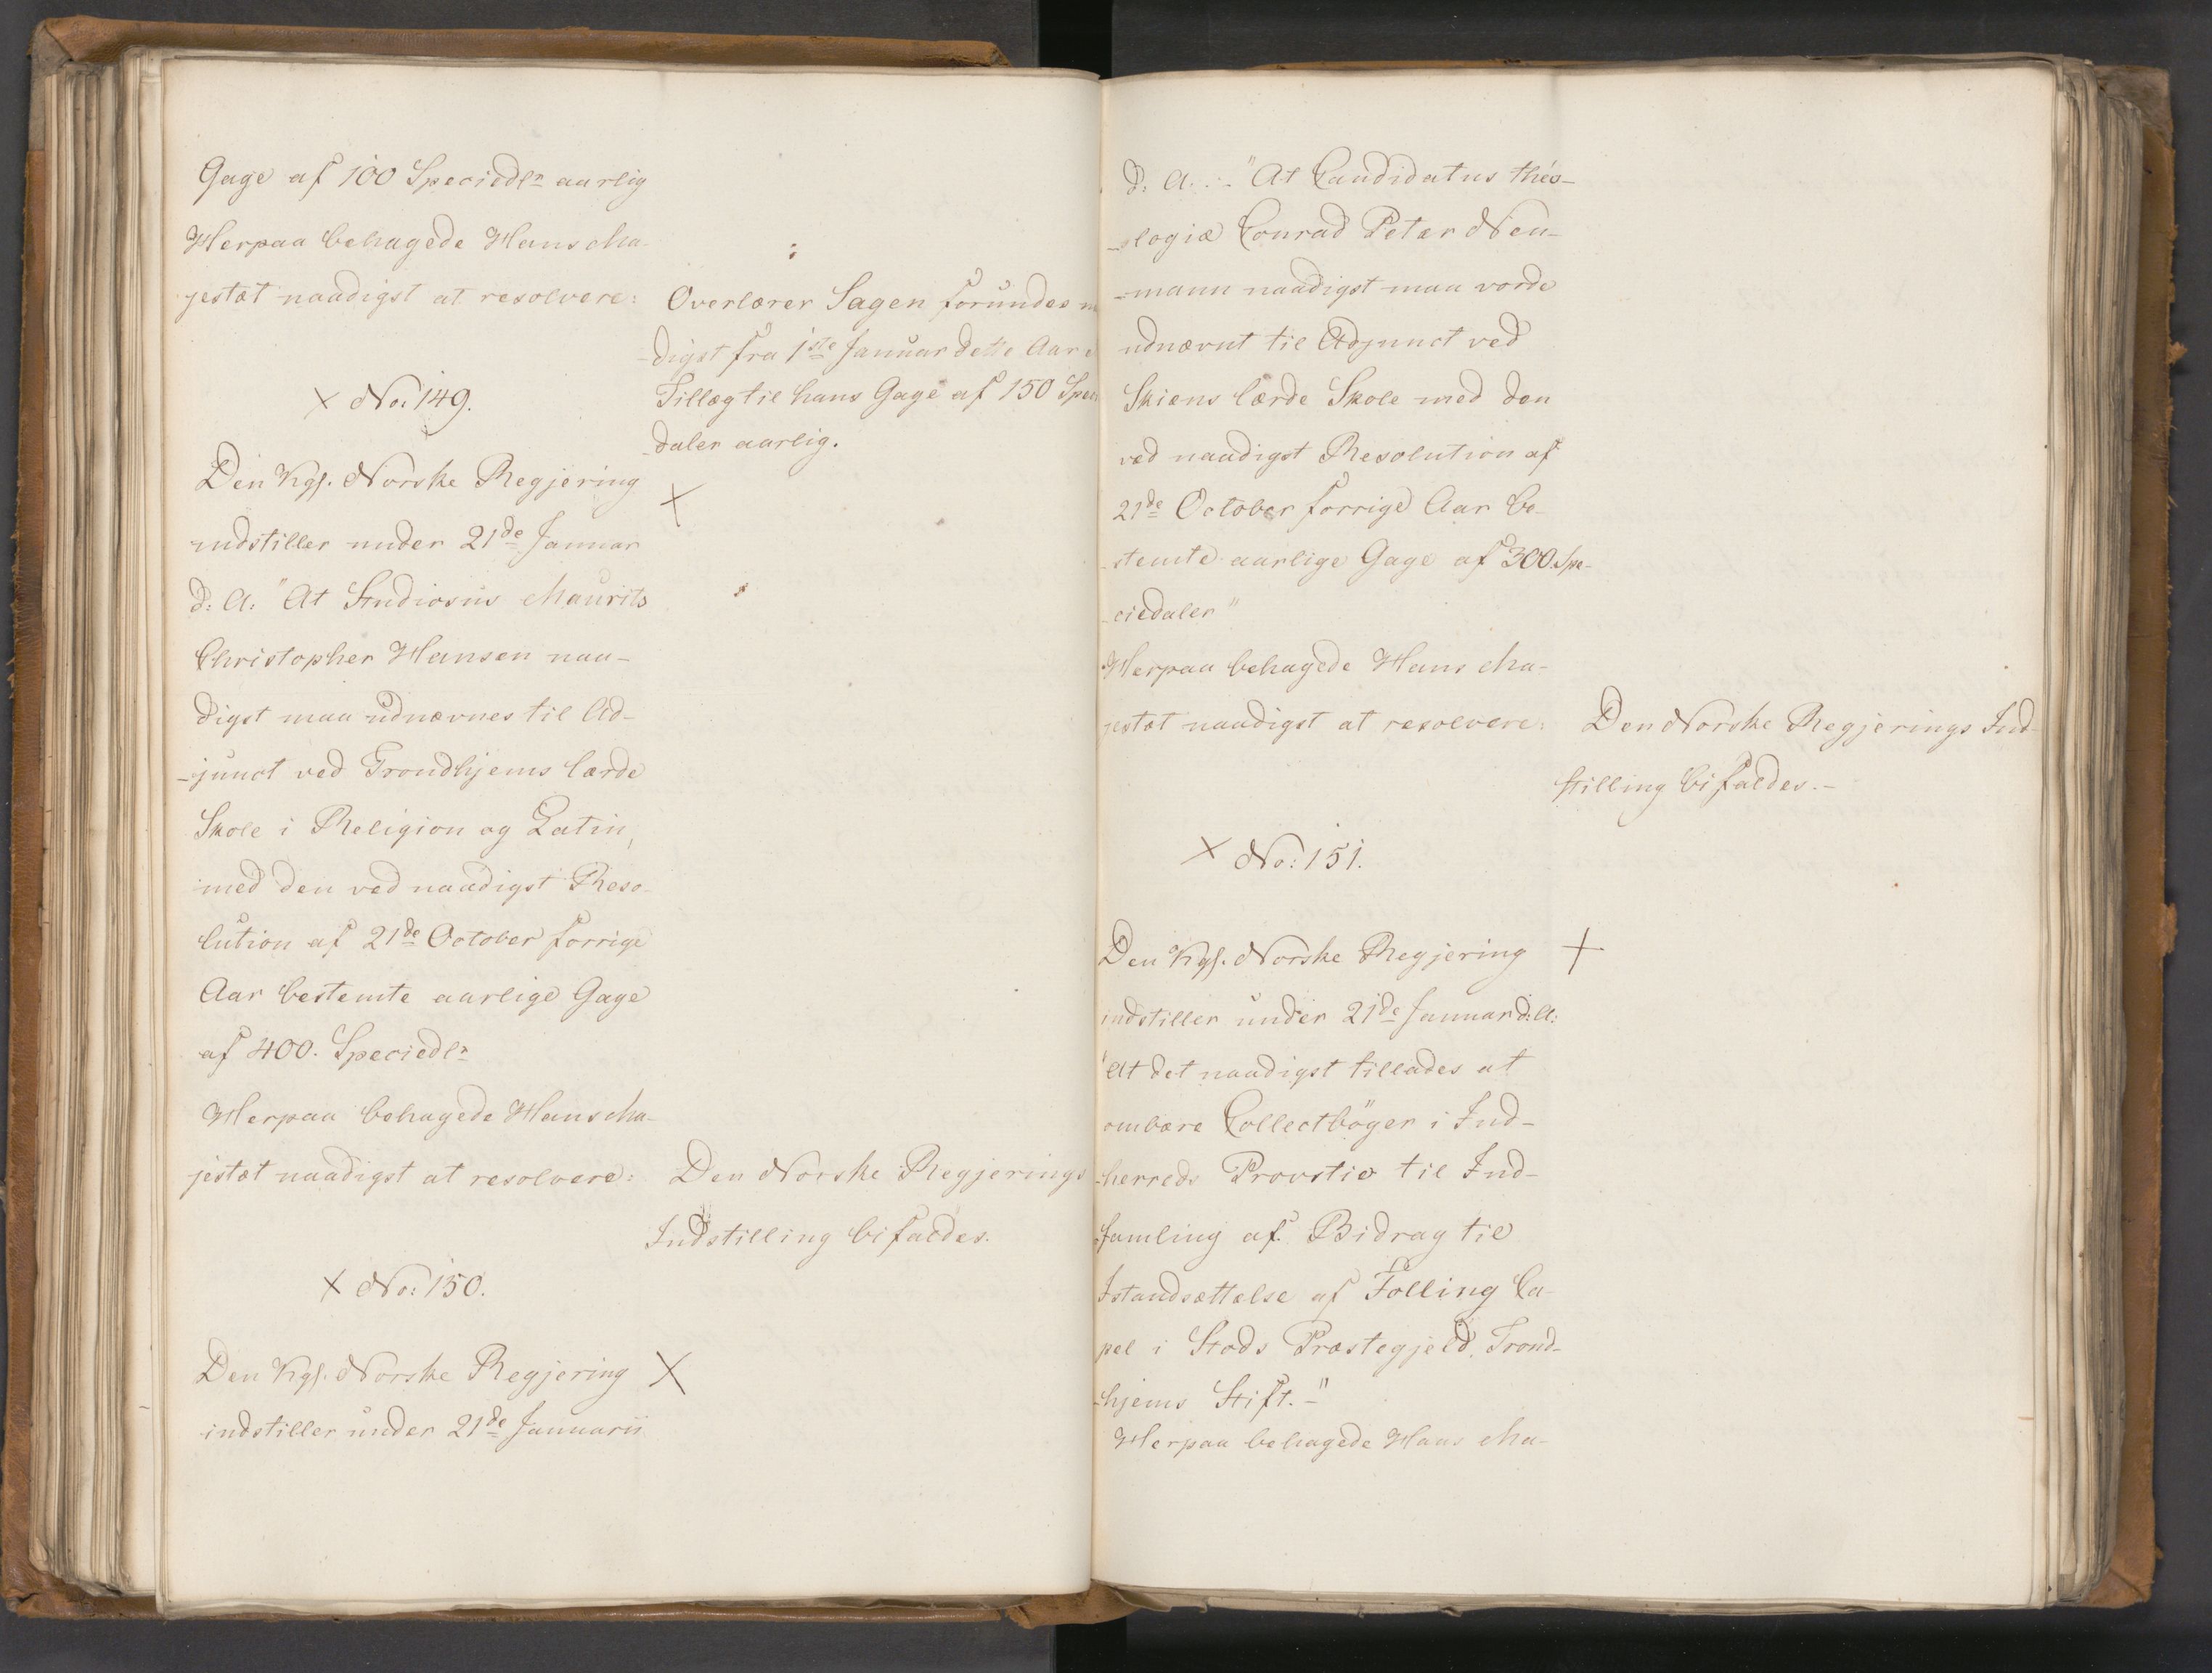 Gage af 100 Speciedlr aarlig
Herpaa behagede Hans Ma-
jestæt naadigst at resolvere:
Overlærer Sagen forundes
digst fra 1ste Januar dette Aar
Tillæg til hans Gage af 150 Specie
daler aarlig.
No: 149.
Den Kgl. Norske Regjering
indstiller under 21de Januar
d: A: "At Studiosus Maurits
Christopher Hansen naa-
digst maa udnævnes til Ad-
-junct ved Trondhjems lærde
Skole i Religion og Latin,
med den ved naadigst Reso-
lution af 21de October forrige
Aar bestemte aarlige Gage
af 400. Speciedlr
Herpaa behagede Hans Ma-
jestæt naadigst at resolvere:
Den Norske Regjerings
Indstilling bifaldes.
No: 150.
Den Kgl. Norske Regjering
indstiller under 21de Januarii
d: A: "At Candidatus theo-
-logiæ Conrad Peter Neu-
-mann naadigst maa vorde
udnævnt til Adjunct ved
Skiens lærde Skole med den
ved naadigst Resolution af
21de October forrige Aar be-
stemte aarlige Gage af 300. Spe-
-ciedaler"
Herpaa behagede Hans Ma-
jestæt naadigst at resolvere:
Den Norske Regjerings Ind-
stilling bifaldes.-
No: 151.
Den Kgl. Norske Regjering
indstiller under 21de Januar d: A:
"At det naadigst tillades at
ombære Collectbøger i Ind-
-herreds Provstie til Ind-
samling af Bidrag til
Istandsættelse af Følling Ca-
pel i Stods Præstegjeld, Trond-
-hjems Stift.-"
Herpaa behagede Hans Ma-